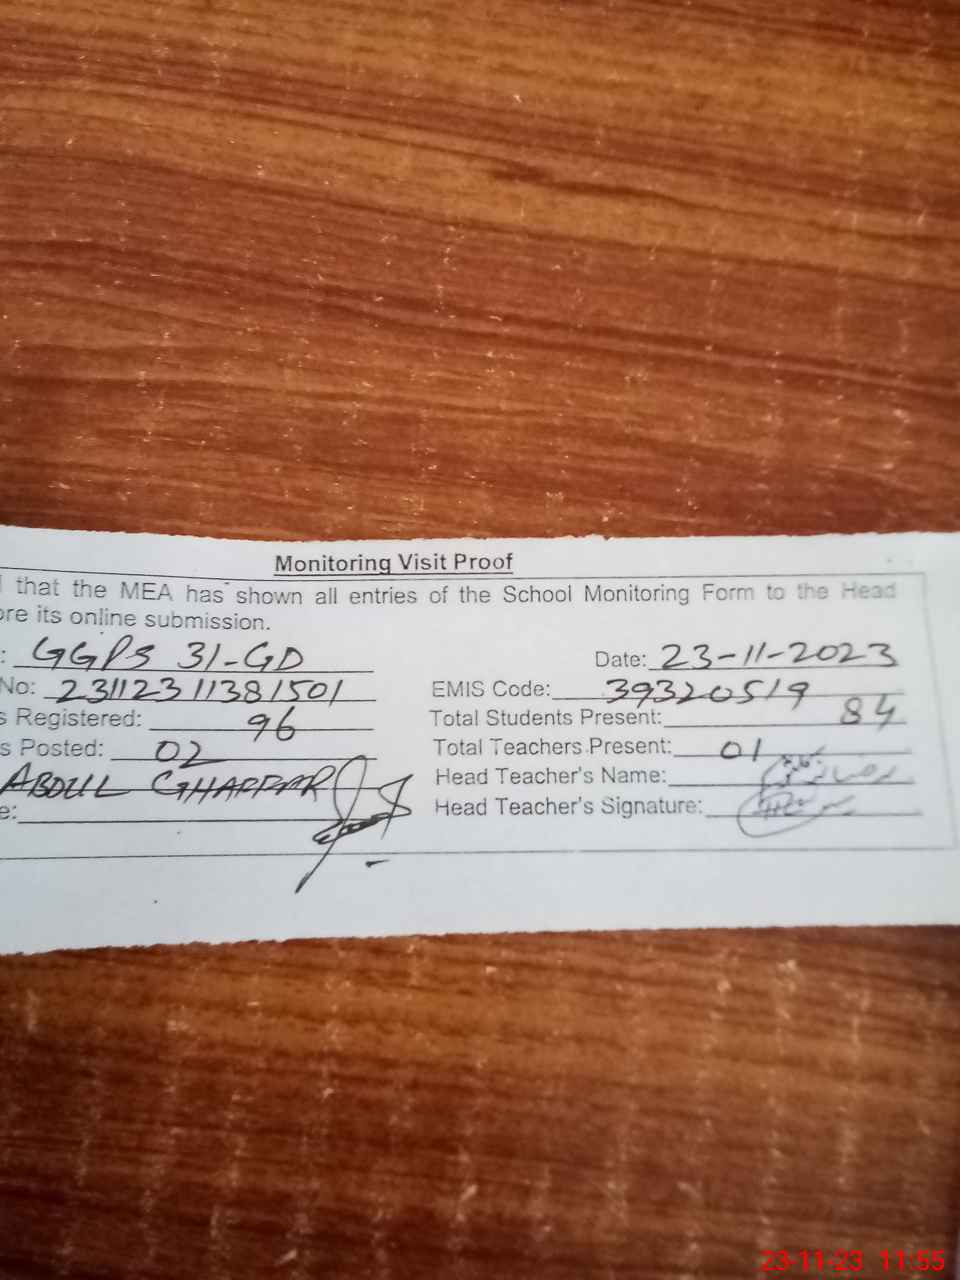 Monitoring Visit Proof
that the MEA has shown all entries of the School Monitoring Form to the Head
ore its online submission.
: GGPS 31-GD Date: 23-11-2023
No: 23112311381501 EMIS Code: 39320519
s Registered: 96 Total Students Present: 84
s Posted: 02 Total Teachers Present: 01
ABDUL GHAFFAR Head Teacher's Name:
e: Head Teacher's Signature:
23-11-23 11:55